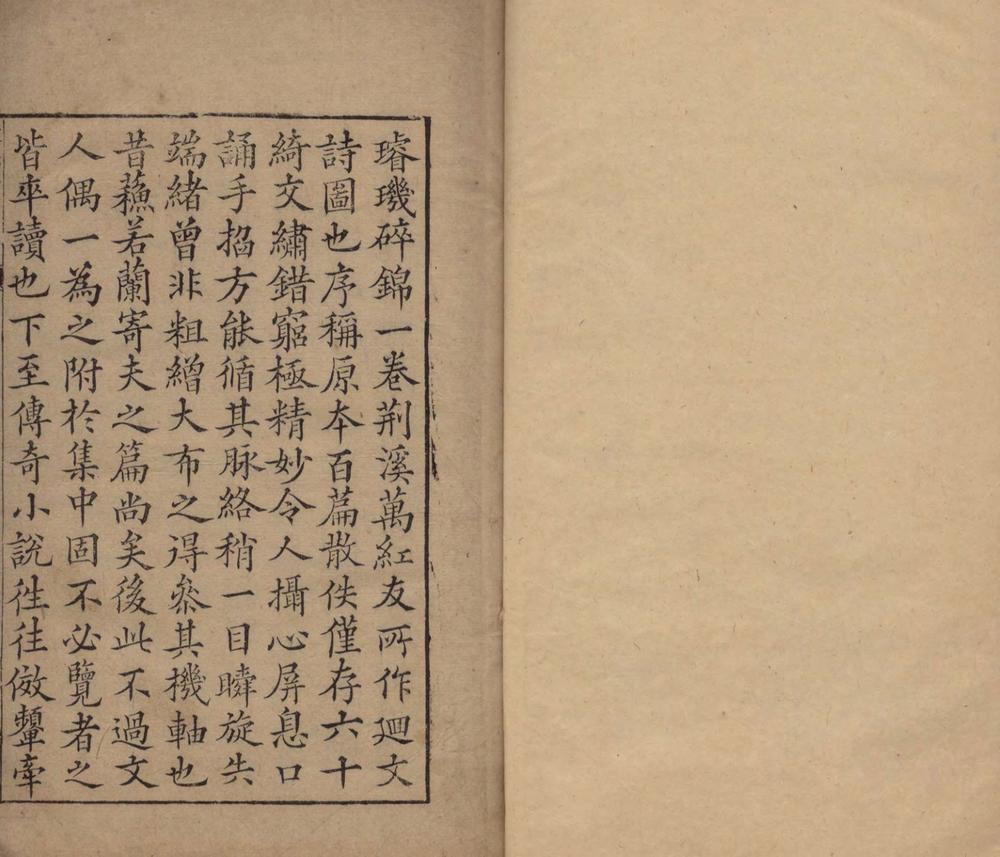 璿璣碎錦一卷荆溪萬紅友所作廻文
詩圖也序稱原本百篇散佚僅存六十
綺文繡錯窮極精妙令人攝心屏息口
誦手掐方能循其脉絡稍一目瞬旋失
端緒曾非粗繒大布之得叅其機軸也
昔蘓若蘭寄夫之篇尚矣後此不過文
人偶一為之附於集中固不必覽者之
皆卒讀也下至傳奇小說徃徃倣顰牽